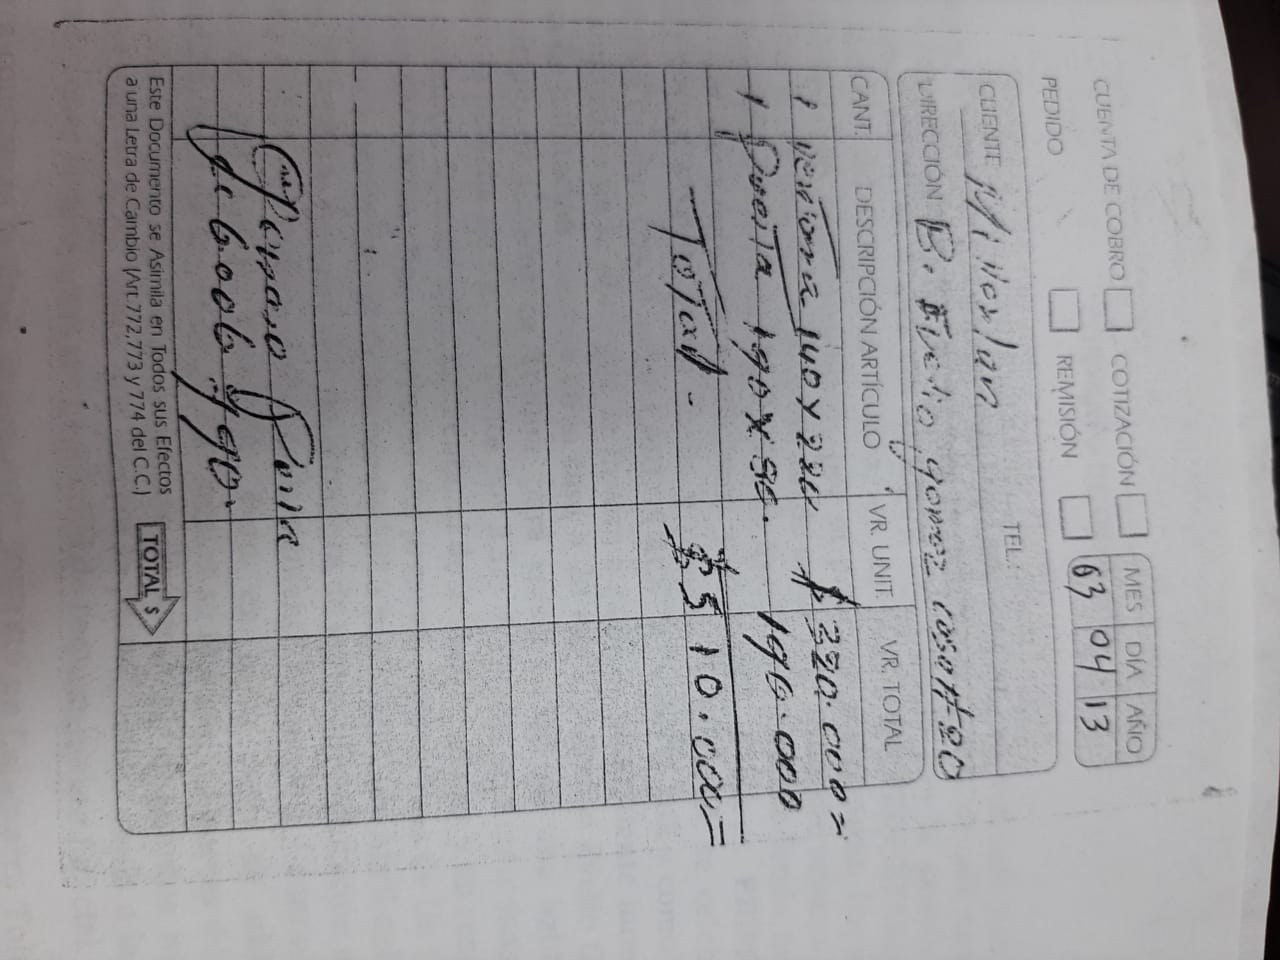 CUENTA DE COBRO COTIZACIÓN MES DÍA AÑO
PEDIDO REMISIÓN 03 04 13
CLIENTE TEL.:
DIRECCIÓN B. Evelio gomez casa # 20
CANT. DESCRIPCIÓN ARTÍCULO VR. UNIT. VR. TOTAL
1 ventana 140 x 220 $ 320.000=
1 Puerta 190 x 90. 190.000
Total. $ 510.000=
Este Documento se Asimila en Todos sus Efectos
a una Letra de Cambio (Art.772,773 y 774 del C.C.) TOTAL $